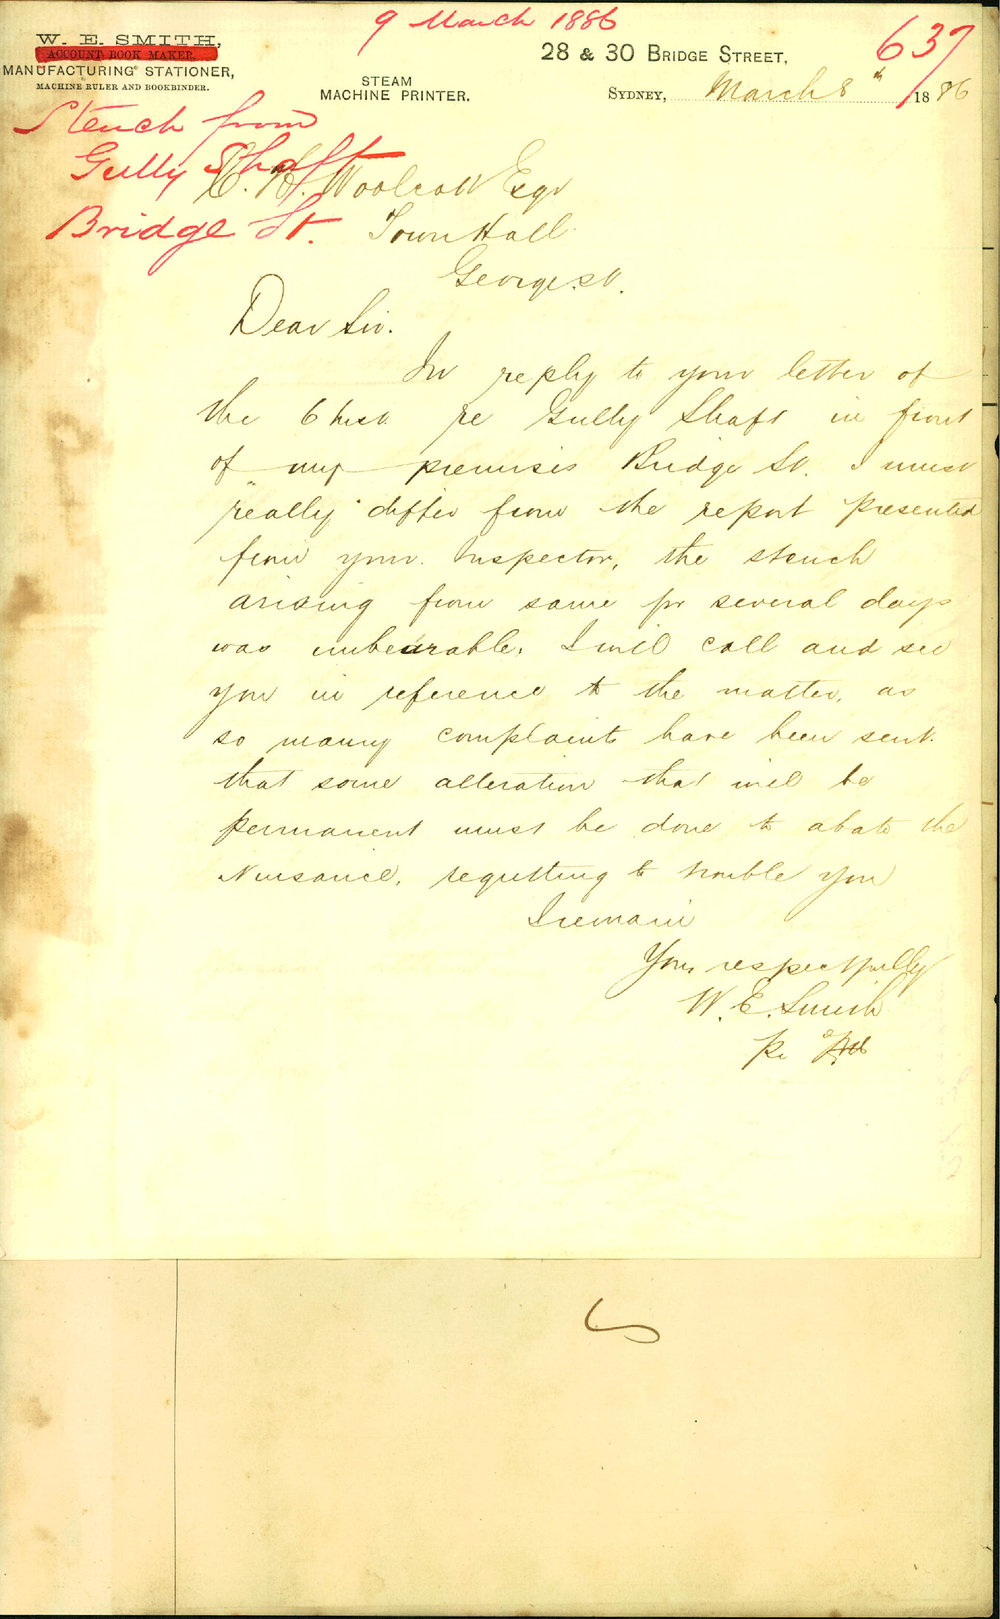 9 March 1886
637
W. E. SMITH,
ACCOUNT BOOK MAKER,
MANUFACTURING STATIONER,
MACHINE RULER AND BOOKBINDER.
STEAM
MACHINE PRINTER.
28 & 30 BRIDGE STREET,
SYDNEY, March 8th 1886
Stench from
Gully Shaft
Bridge St.
C. H. Woolcott Esqr
Town Hall
George St.
Dear Sir.
In reply to your letter of
the 6 Inst. re Gully Shaft in front
of my premises Bridge St. I must
"really" differ from the report presented
from your Inspector, the stench
arising from same for several days
was unbearable. I will call and see
you in reference to the matter, as
so many complaints have been sent.
that some alteration that will be
permanent must be done to abate the
Nuisance, regretting to trouble you
I remain
Your respectfully
W. E. Smith
Per